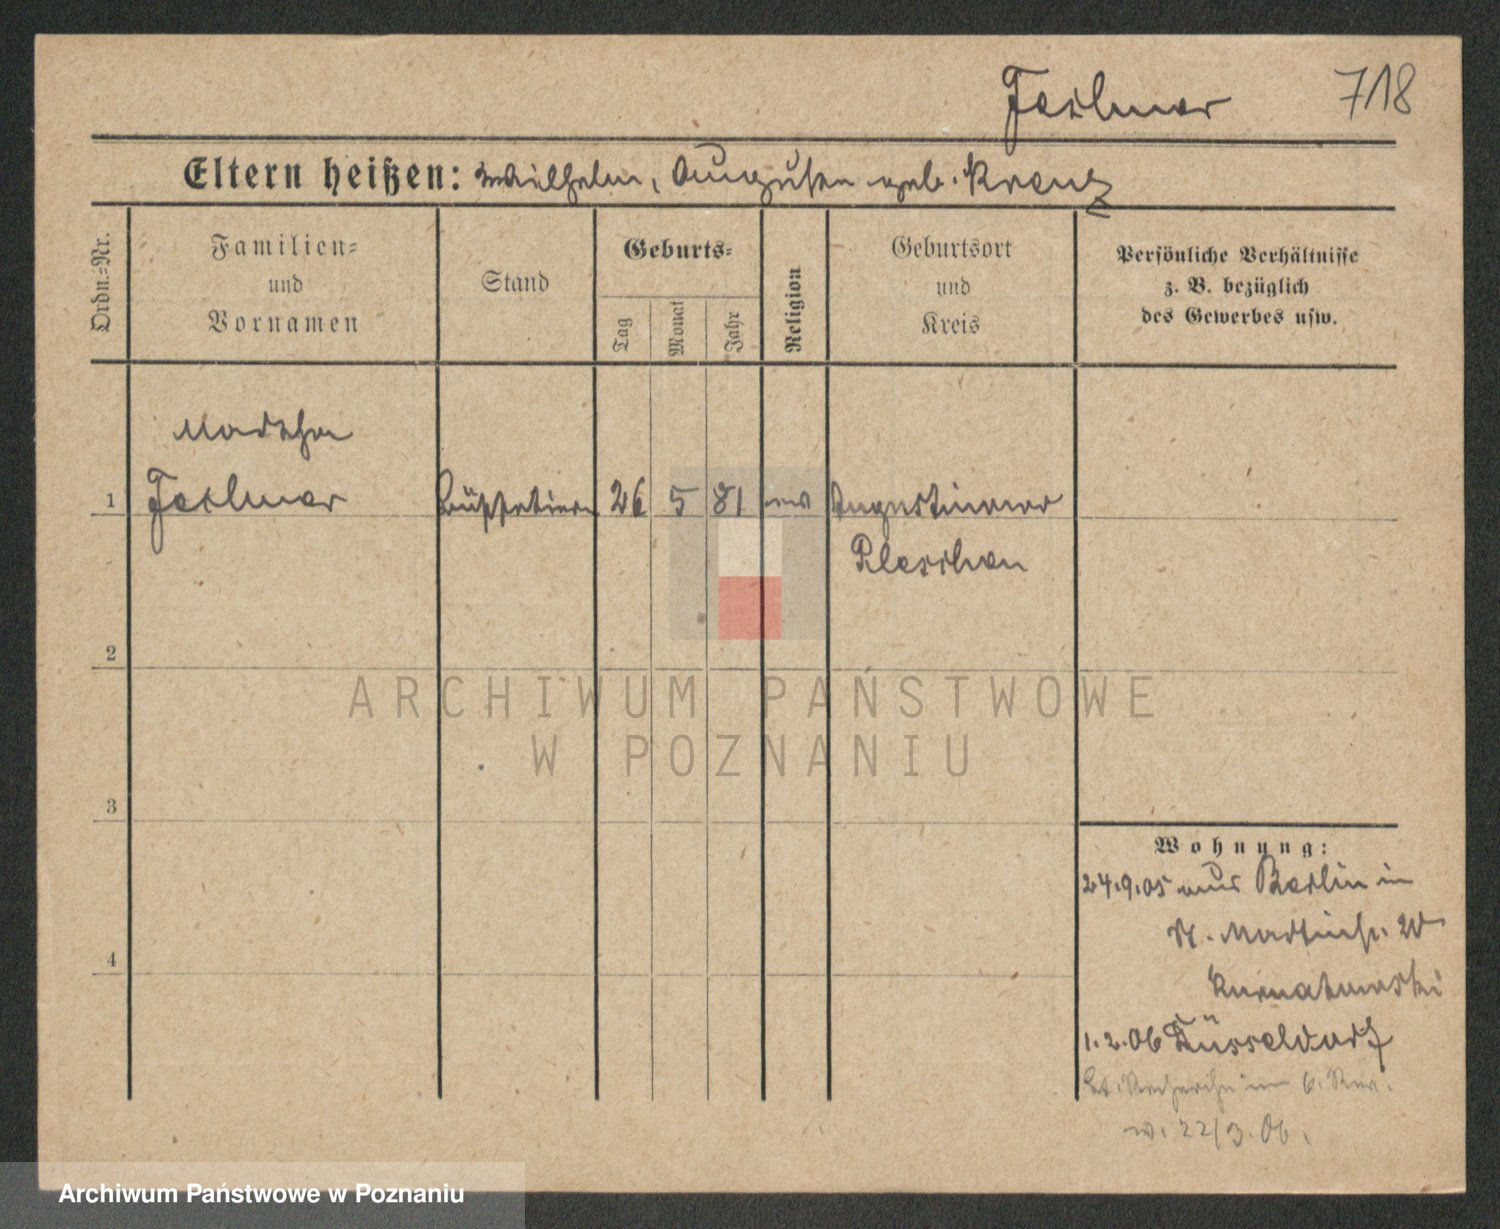 718
Eltern heißen: Wilhelm, Auguste geb. Krenz
Ordn.=Nr.
Familien=
und
Vornamen
Stand
Geburts=
Tag
Monat
Jahr
Religion
Geburtsort
und
Kreis
Persönliche Verhältnisse
z. B. bezüglich
des Gewerbes usw.
Martha
1
Büffetiere
26
5
81
ev
Augustinowo
Pleschen
2
ARCHIWUM PAŃSTWOWE
W POZNANIU
3
Wohnung:
24.9.05 aus Berlin in
St. Martinstr. 20
Kurnatowski
4
1.2.06 Düsseldorf
lt. Recherche im 6. Rev.
v. 22/3.06.
Archiwum Państwowe w Poznaniu